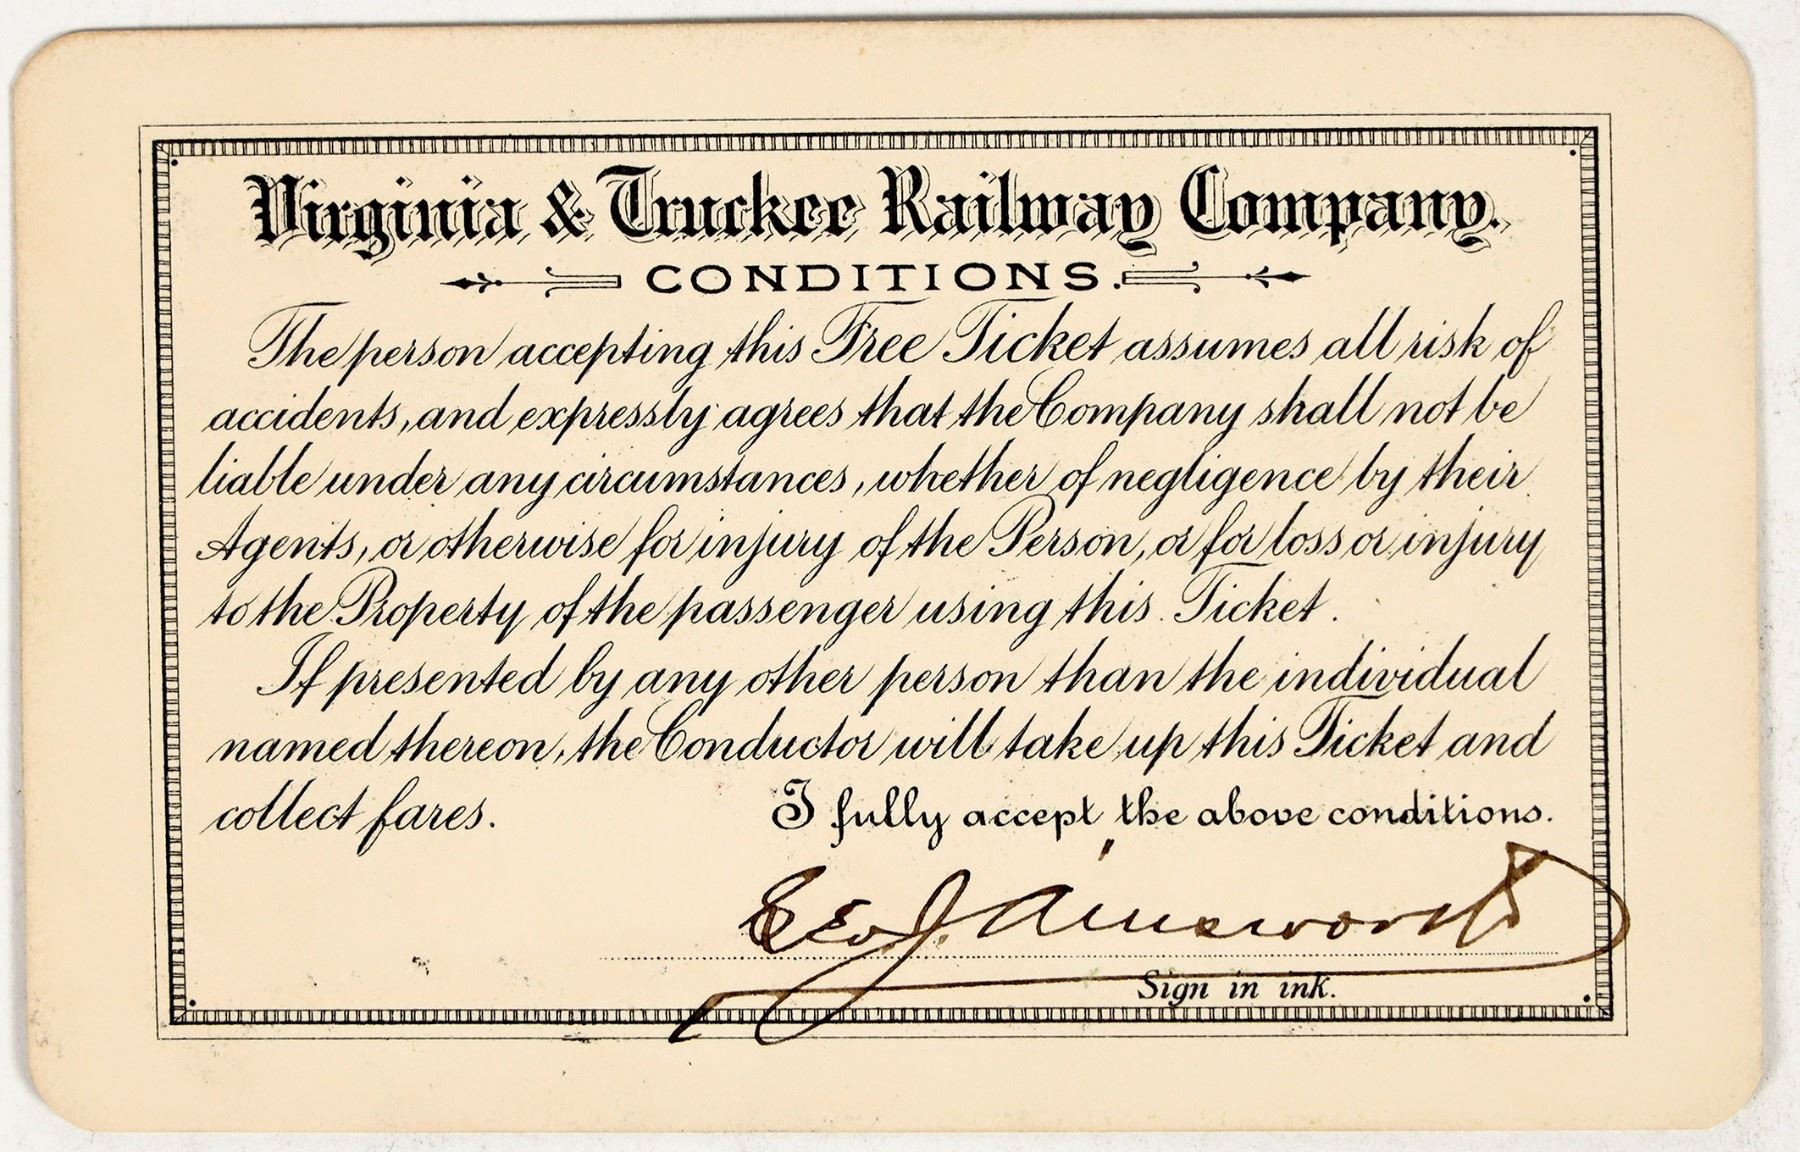 Virginia & Truckee Railway Company.
CONDITIONS.
The person accepting this Free Ticket assumes all risk of
accidents, and expressly agrees that the Company shall not be
liable under any circumstances, whether of negligence by their
Agents, or otherwise for injury of the Person, or for loss or injury
to the Property of the passenger using this Ticket.
If presented by any other person than the individual
named thereon, the Conductor will take up this Ticket and
collect fares.
I fully accept the above conditions.
Geo J. Ainsworth
Sign in ink.